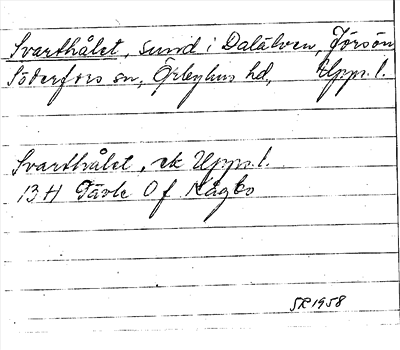 Svarthålet, sund i Dalälven, Jörsön
Söderfors sn, Örbyhus hd, Upps. l.
Svarthålet, ek Upps. l.
13 H Gävle 0 f. Kågbo
SR 1958